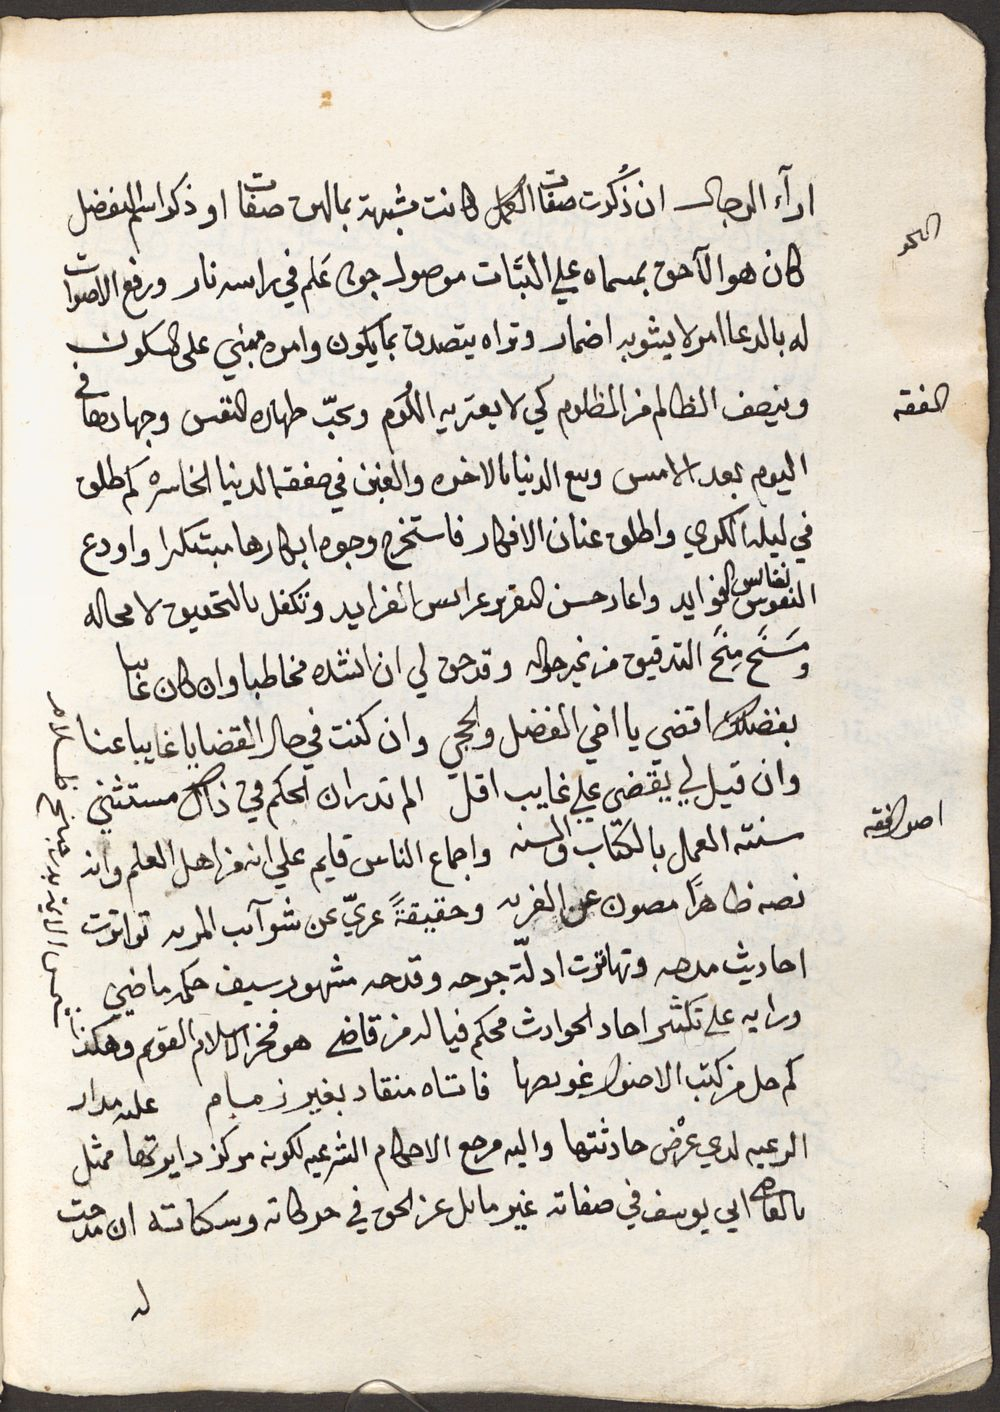 ارآء الرجال ان ذُكرت صفات الكمل كانت مشبهة بماله من صفات او ذكر اسم التفضل
النحو
كان هو الآحق بمسماه علي الثبات موصول جوده عَلم في راسه نار ورفع الاصوات
له بالدعا امر لا يشوبه اضمار وتراه يتصدق بما يكون وامره مبني على السكون
الفقه
وينصف الظالم من المظلوم كي لا يعتريه اللُوم ويحبّ طهاره النفس وجهادها في
اليوم بعد الامس وبيع الدنيا بالاخره والغبن في صفقه الدنيا الخاسره كم طلق
في ليله الكري واطلق عنان الافكار فاستخرج وجوه ابكارها مبتكرا واودع
النفوس نفايس الفوايد واعاد حسن التقرير عرايس الفرايد وتكفل بالتحقيق لا محاله
ومَنَح مِنَح التدقيق من غير حواله وقد حق لي ان انشده مخاطبا وان كان غايبا
بفضلك اقضي يا اخي الفضل والحجي وان كنت في حال القضايا غايبا عنا
وان قيل لي يقضي علي غايب اقل الم تدر ان الحكم في ذاك مستثني
اصول الفقه
سنته العمل بالكتاب والسنه واجماع الناس قايم علي انه من اهل العلم وانه
نصه ظاهرًا مصون عن الفريه وحقيقةً عريّ عن شوآئب المريه تواترت
احاديث مدحه وتهاترت ادلّة جرحه وقدحه مشهور سيف حكمه ماضي
ورايه على تكثير احاد الحوادث محكم فيا له من قاضي هو فخر الاسلام القويم وهكذا
شمس الايمة
كم حل من كتب الاصول عويصها فاتاه منقاد بغير زمام عليه مدار
الرعيه لدي عرْض حادثتها واليه مرجع الاحكام الشرعيه لكونه مركز دايرتها ممثل
بالقاضي ابي يوسف في صفاته غير مايل عن الحق في حركاته وسكناته ان مدحت
له